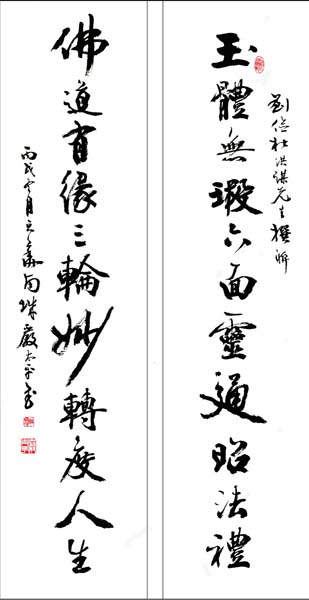 玉體無瑕六面靈通昭法禮
劉 洪謀先生撰聯
佛道有緣三輪妙轉度人生
丙戌 月 嚴太平書